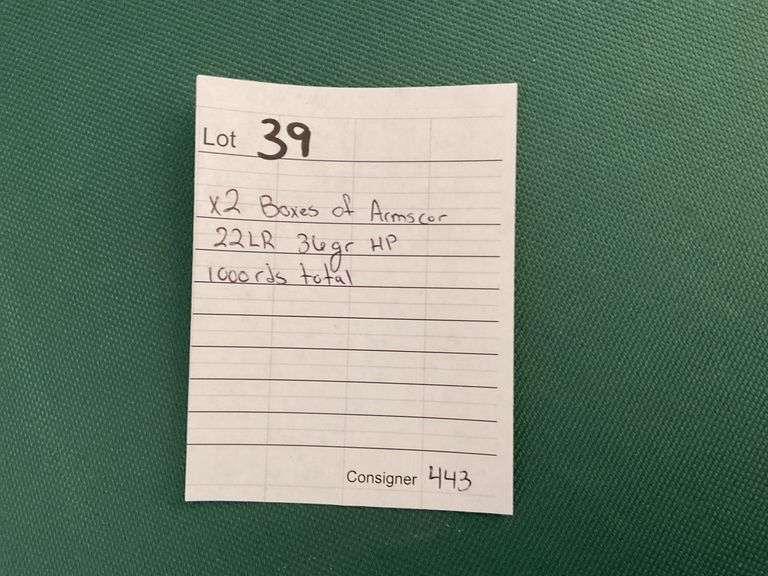 Lot 39
x2 Boxes of Armscor
22LR 36gr HP
1000rds total
Consigner 443